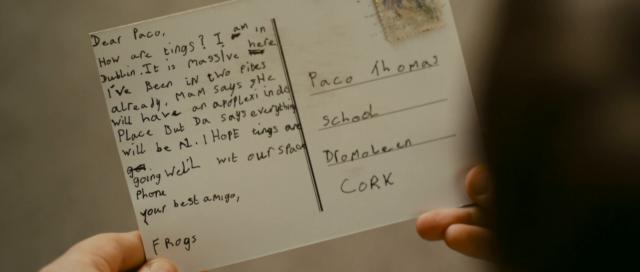 Dear Paco,
How are tings? I am in
Dublin. It is massive here
I've Been in two fibes
already. Mam says she
will have an apoplexi in do
Place But Da says everything
will be . I Hope tings are
going Well wit our space
Phone
your best amigo,
FRogs
Paco Thomas
School
Dromoleen
CORK